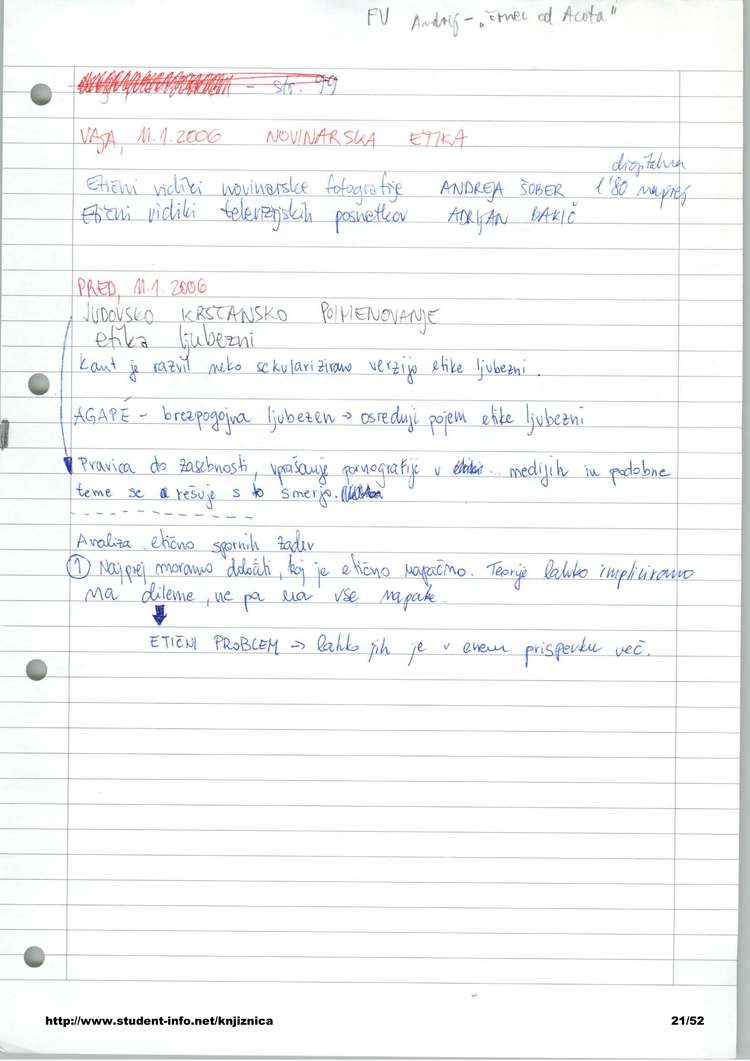 FU Andrej - „črnec od Acota"
- str. 99
VAJA, 11.1.2006 NOVINARSKA ETIKA
digitalna
Etični vidiki novinarske fotografije ANDREJA ŠOBER l '80 naprej
Etični vidiki televizijskih posnetkov ADRIJAN BAKIČ
PRED, 11.1.2006
JUDOVSKO KRŠČANSKO POIMENOVANJE
etika ljubezni
Kant je razvil neko sekularizirano verzijo etike ljubezni.
AGAPÉ - brezpogojna ljubezen → osrednji pojem etike ljubezni
Pravica do zasebnosti, vprašanje pornografije v medijih in podobne
teme se rešuje s to smerjo.
Analiza etično spornih zadev
① Najprej moramo določiti, kaj je etično napačno. Teorije lahko impliciramo
na dileme, ne pa na vse napake.
ETIČNI PROBLEM → lahko jih je v enem prispevku več.
http://www.student-info.net/knjiznica 21/52